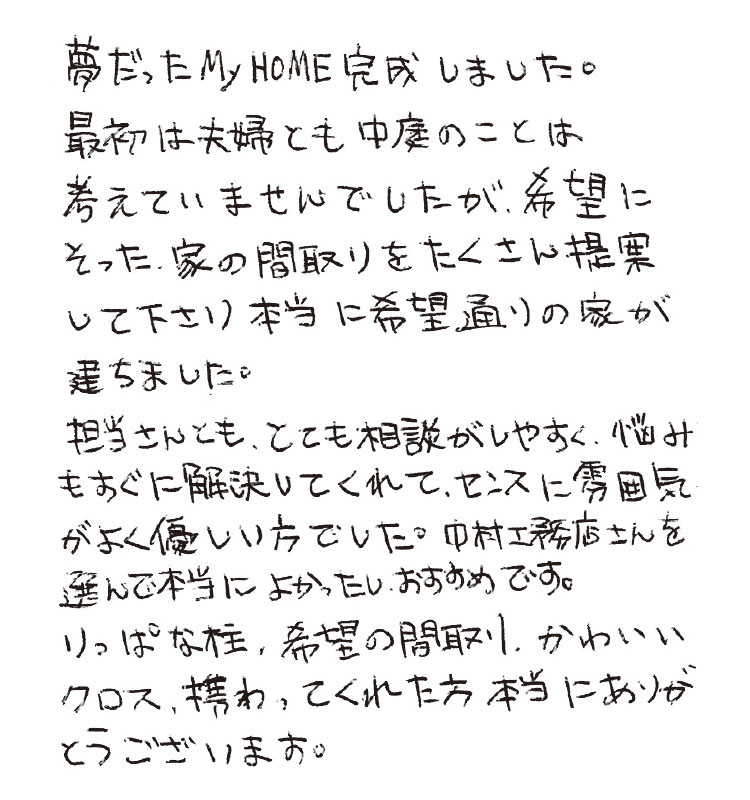 夢だったMyHOME完成しました。
最初は夫婦とも中庭のことは
考えていませんでしたが、希望に
そった、家の間取りをたくさん提案
して下さり本当に希望通りの家が
建ちました。
担当さんとも、とても相談がしやすく、悩み
もすぐに解決してくれて、センスに雰囲気
がよく優しい方でした。中村工務店さんを
選んで本当によかったしおすすめです。
りっぱな柱、希望の間取り、かわいい
クロス、携わってくれた方本当にありが
とうございます。